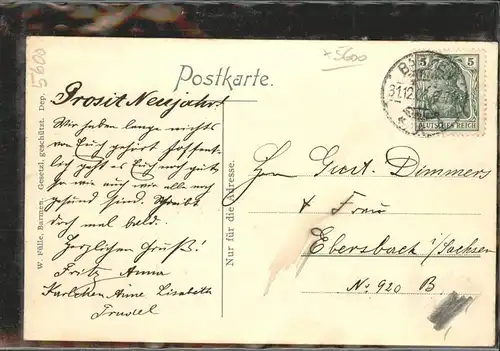 5600
x 5600
Postkarte.
5 5
31.12
DEUTSCHES REICH
W. Fülle, Barmen. Gesetzl. geschützt. Dep.
Nur für die Adresse.
Prosit Neujahr!
Wir haben lange nichts
von Euch gehört hoffent-
lich geht es Euch noch gut
wie auch wir alle noch
gesund sind. Schreibt
doch mal bald.
Herzlichen Gruß!
Fritz Anna
Karlchen Anne Lisabeth
Trudel
Gust. Dimmers
+ Frau
Ebersbach i/Sachsen
No 920 B